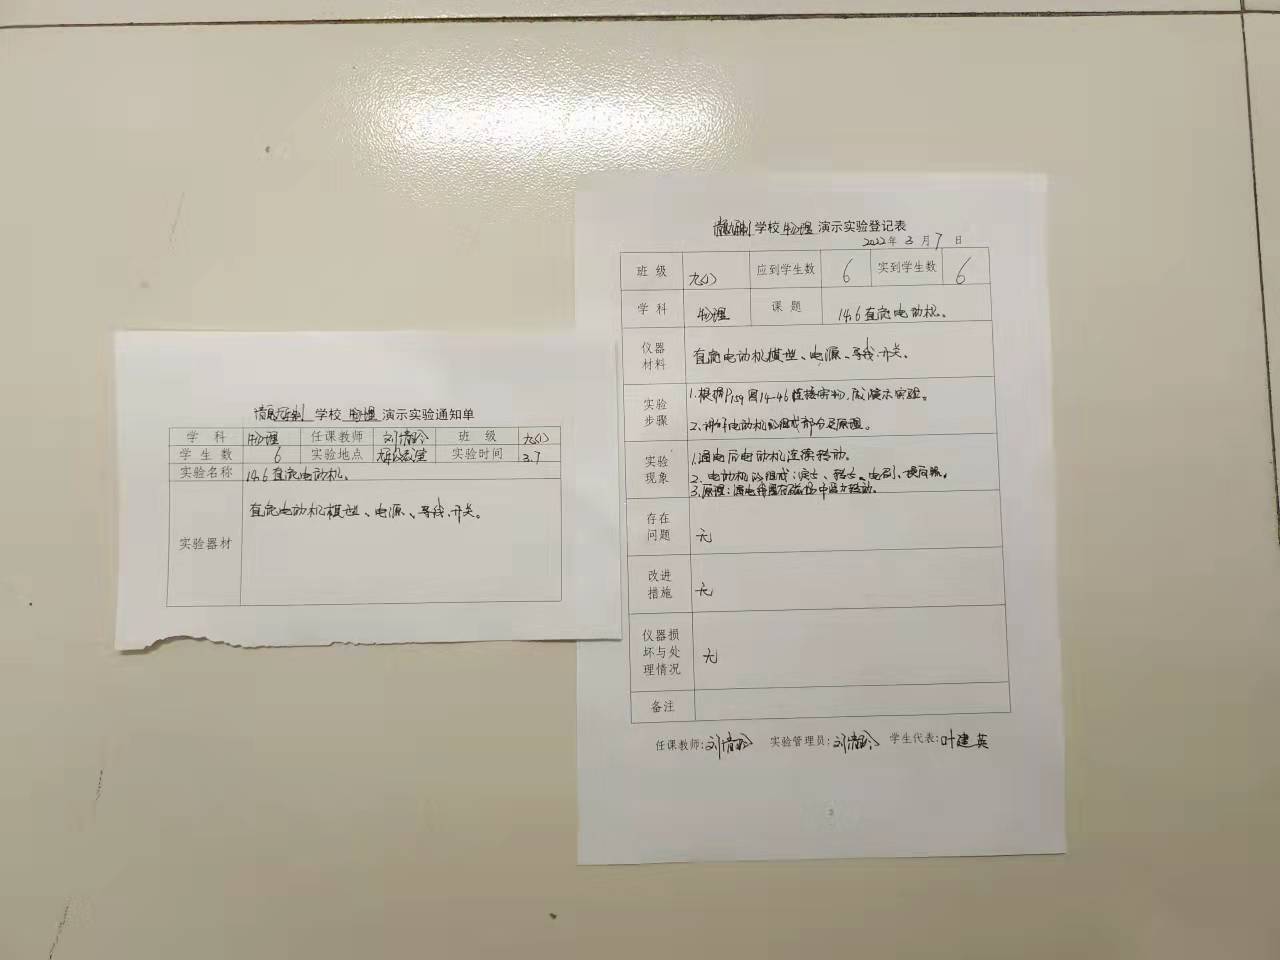 学校 物理 演示实验通知单
学 科 物理 任课教师 刘清玲 班 级 九(1)
学 生 数 6 实验地点 实验时间 3.7
实验名称 14.6直流电动机.
实验器材 直流电动机模型、电源、导线、开关。
学校 物理 演示实验登记表
2022年 3 月 7 日
班 级 九(1) 应到学生数 6 实到学生数 6
学 科 物理 课 题 14.6直流电动机.
仪器
材料
直流电动机模型、电源、导线、开关。
实验
步骤
1.根据P159图14-46连接实物,演示实验。
2.讲解电动机的组成部分及原理。
实验
现象
1.通电后电动机连续转动。
2.电动机的组成:定子、转子、电刷、换向器。
3.原理:通电线圈在磁场中受力转动。
存在
问题
无
改进
措施
无
仪器损
坏与处
理情况
无
备注
任课教师:刘清玲 实验管理员:刘清玲 学生代表:叶建英